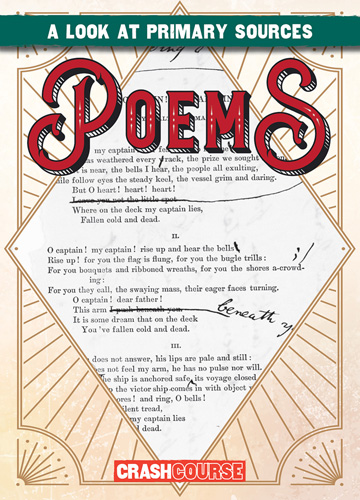 A LOOK AT PRIMARY SOURCES
POEMS
CAPTAIN
my captain
was weathered every rack, the prize we sought
is near, the bells I hear, the people all exulting,
follow eyes the steady keel, the vessel grim and daring.
But O heart! heart! heart!
Leave you not the little spot
Where on the deck my captain lies,
Fallen cold and dead.
II.
O captain! my captain! rise up and hear the bells
Rise up! for you the flag is flung, for you the bugle trills:
For you bouquets and ribboned wreaths, for you the shores a-crowd-
ing:
For you they call, the swaying mass, their eager faces turning.
O captain! dear father!
This arm I push beneath you
beneath
It is some dream that on the deck
You 've fallen cold and dead.
III.
does not answer, his lips are pale and still:
does not feel my arm, he has no pulse nor will.
The ship is anchored safe, its voyage closed
the victor ship comes in with object
ores! and ring, O bells!
ilent tread,
my captain lies
cold and dead.
CRASHCOURSE